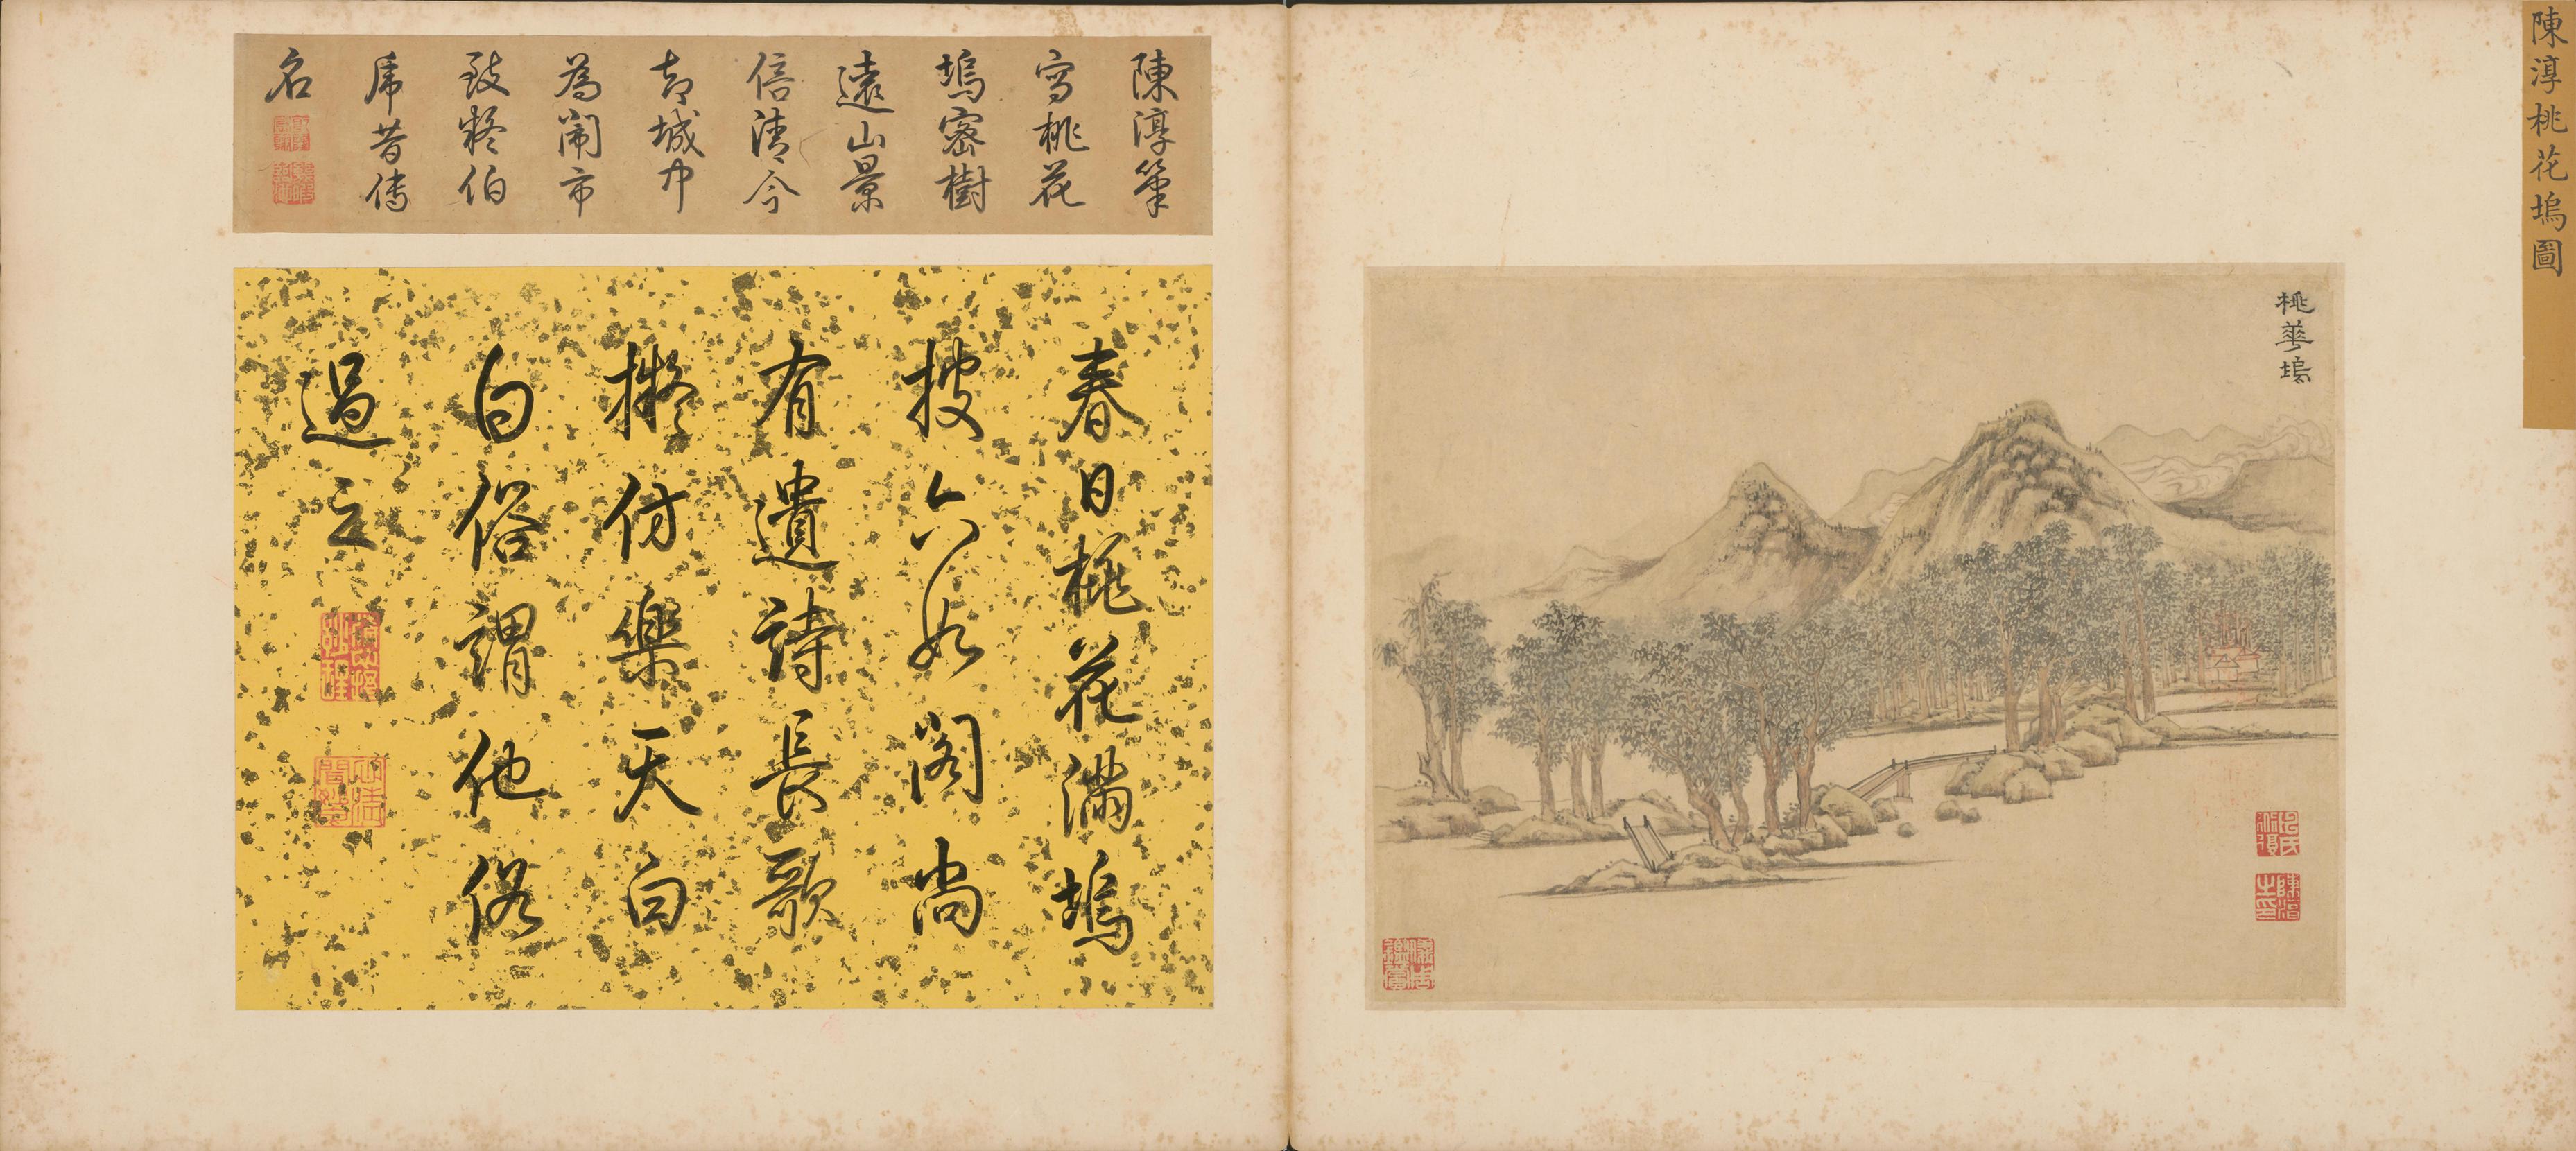 陳淳桃花塢圖
桃華塢
陳淳之印
陳淳筆
寫桃花
塢密樹
遠山景
倍清今
却城中
為鬧市
致疑伯
虎昔傳
名
春日桃花滿塢
披六如閣尚
有遺詩長歌
擬仿樂天白
白俗謂他俗
過之